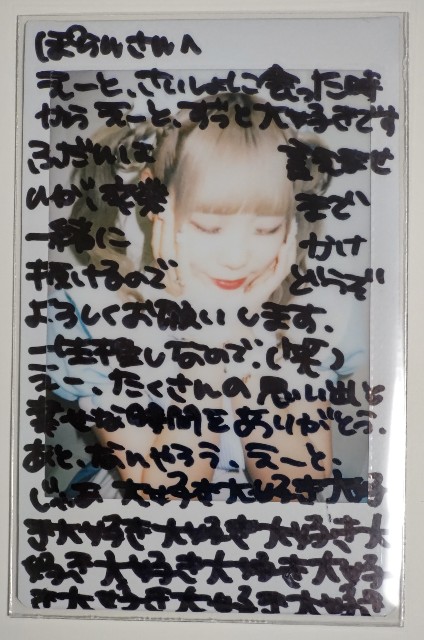 ぽろんさんへ
えーと、さいしょに会った時
からえーと、ずっと大好きです
ふだんは 言えませ
んが、卒業 まで
一緒に かけ
抜けるので どうぞ
よろしくお願いします。
一生推しなので、(笑)
えー、たくさんの思い出と
幸せな時間をありがとう。
あと、なんやろう、えーと、
じゃあ 大好き大好き大好
き大好き大好き大好き大
好き大好き大好き大好
き大好き大好き大好き